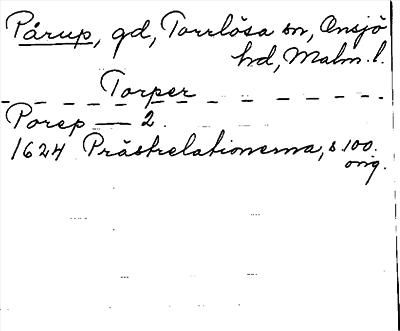 Pårup, gd, Torrlösa sn, Onsjö
hd, Malm. l.
Torper
Porep — 2
1624 Prästrelationerna, s 100.
orig.